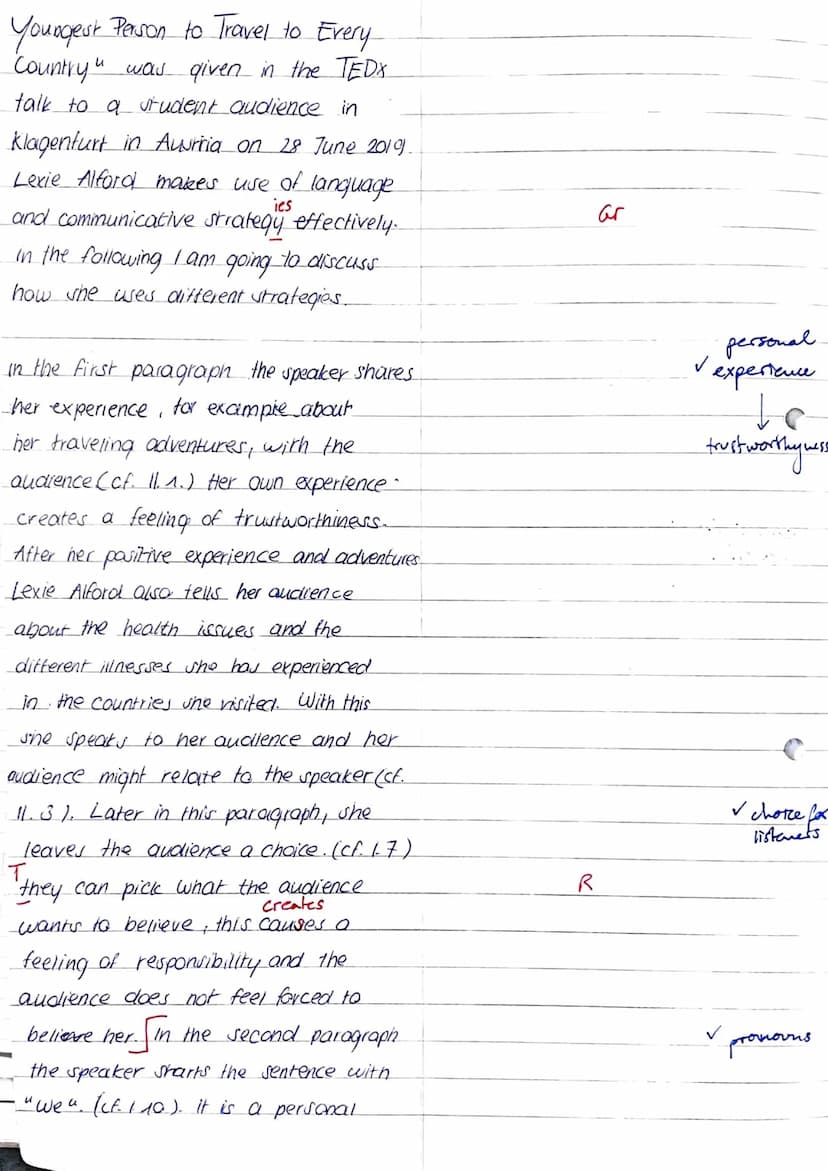 Youngest Person to Travel to Every
Country" was given in the TEDx
talk to a student audience in
Klagenfurt in Austria on 28 June 2019.
Lexie Alford makes use of language
ies
and communicative strategy effectively. Gr
In the following I am going to discuss
how she uses different strategies.
personal
In the first paragraph the speaker shares ✓ experience
her experience, for example about ↓
her traveling adventures, with the trustworthyness
audience (cf. ll. 1.) Her own experience
creates a feeling of trustworthiness.
After her positive experience and adventures
Lexie Alford also tells her audience
about the health issues and the
different illnesses she has experienced
in the countries she visited. With this
she speaks to her audience and her
audience might relate to the speaker (cf.
ll. 3). Later in this paragraph, she ✓ choice for
leaves the audience a choice. (cf. l. 7) listeners
T
they can pick what the audience R
creates
wants to believe, this causes a
feeling of responsibility and the
audience does not feel forced to
believe her. [In the second paragraph ✓ pronouns
the speaker starts the sentence with
"We". (cf. l 10). it is a personal